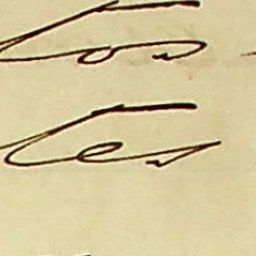 tos
tes